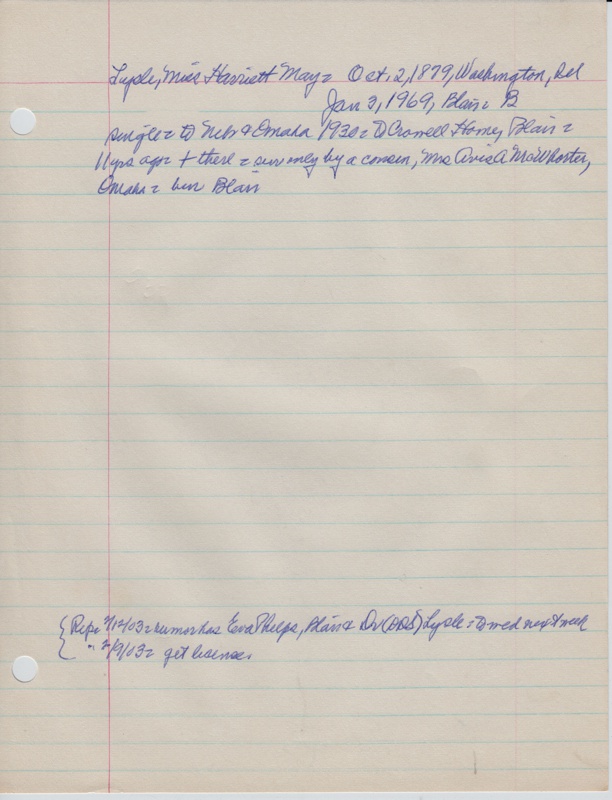 Lysle, Miss Harriett May = Oct. 2, 1879, Washington, Del
Jan 3, 1969, Blair = B
single = to Nebr & Omaha 1930 = To Crowell Home, Blair =
11 yrs ago + there = surv only by a cousin, Mrs Avis A McWhorter,
Omaha = bur Blair
{ Rep = 1903 = rumor has Eva Phelps, Blair & Dr (DDS) Lysle = to wed next week
{ " = 03 = get license.